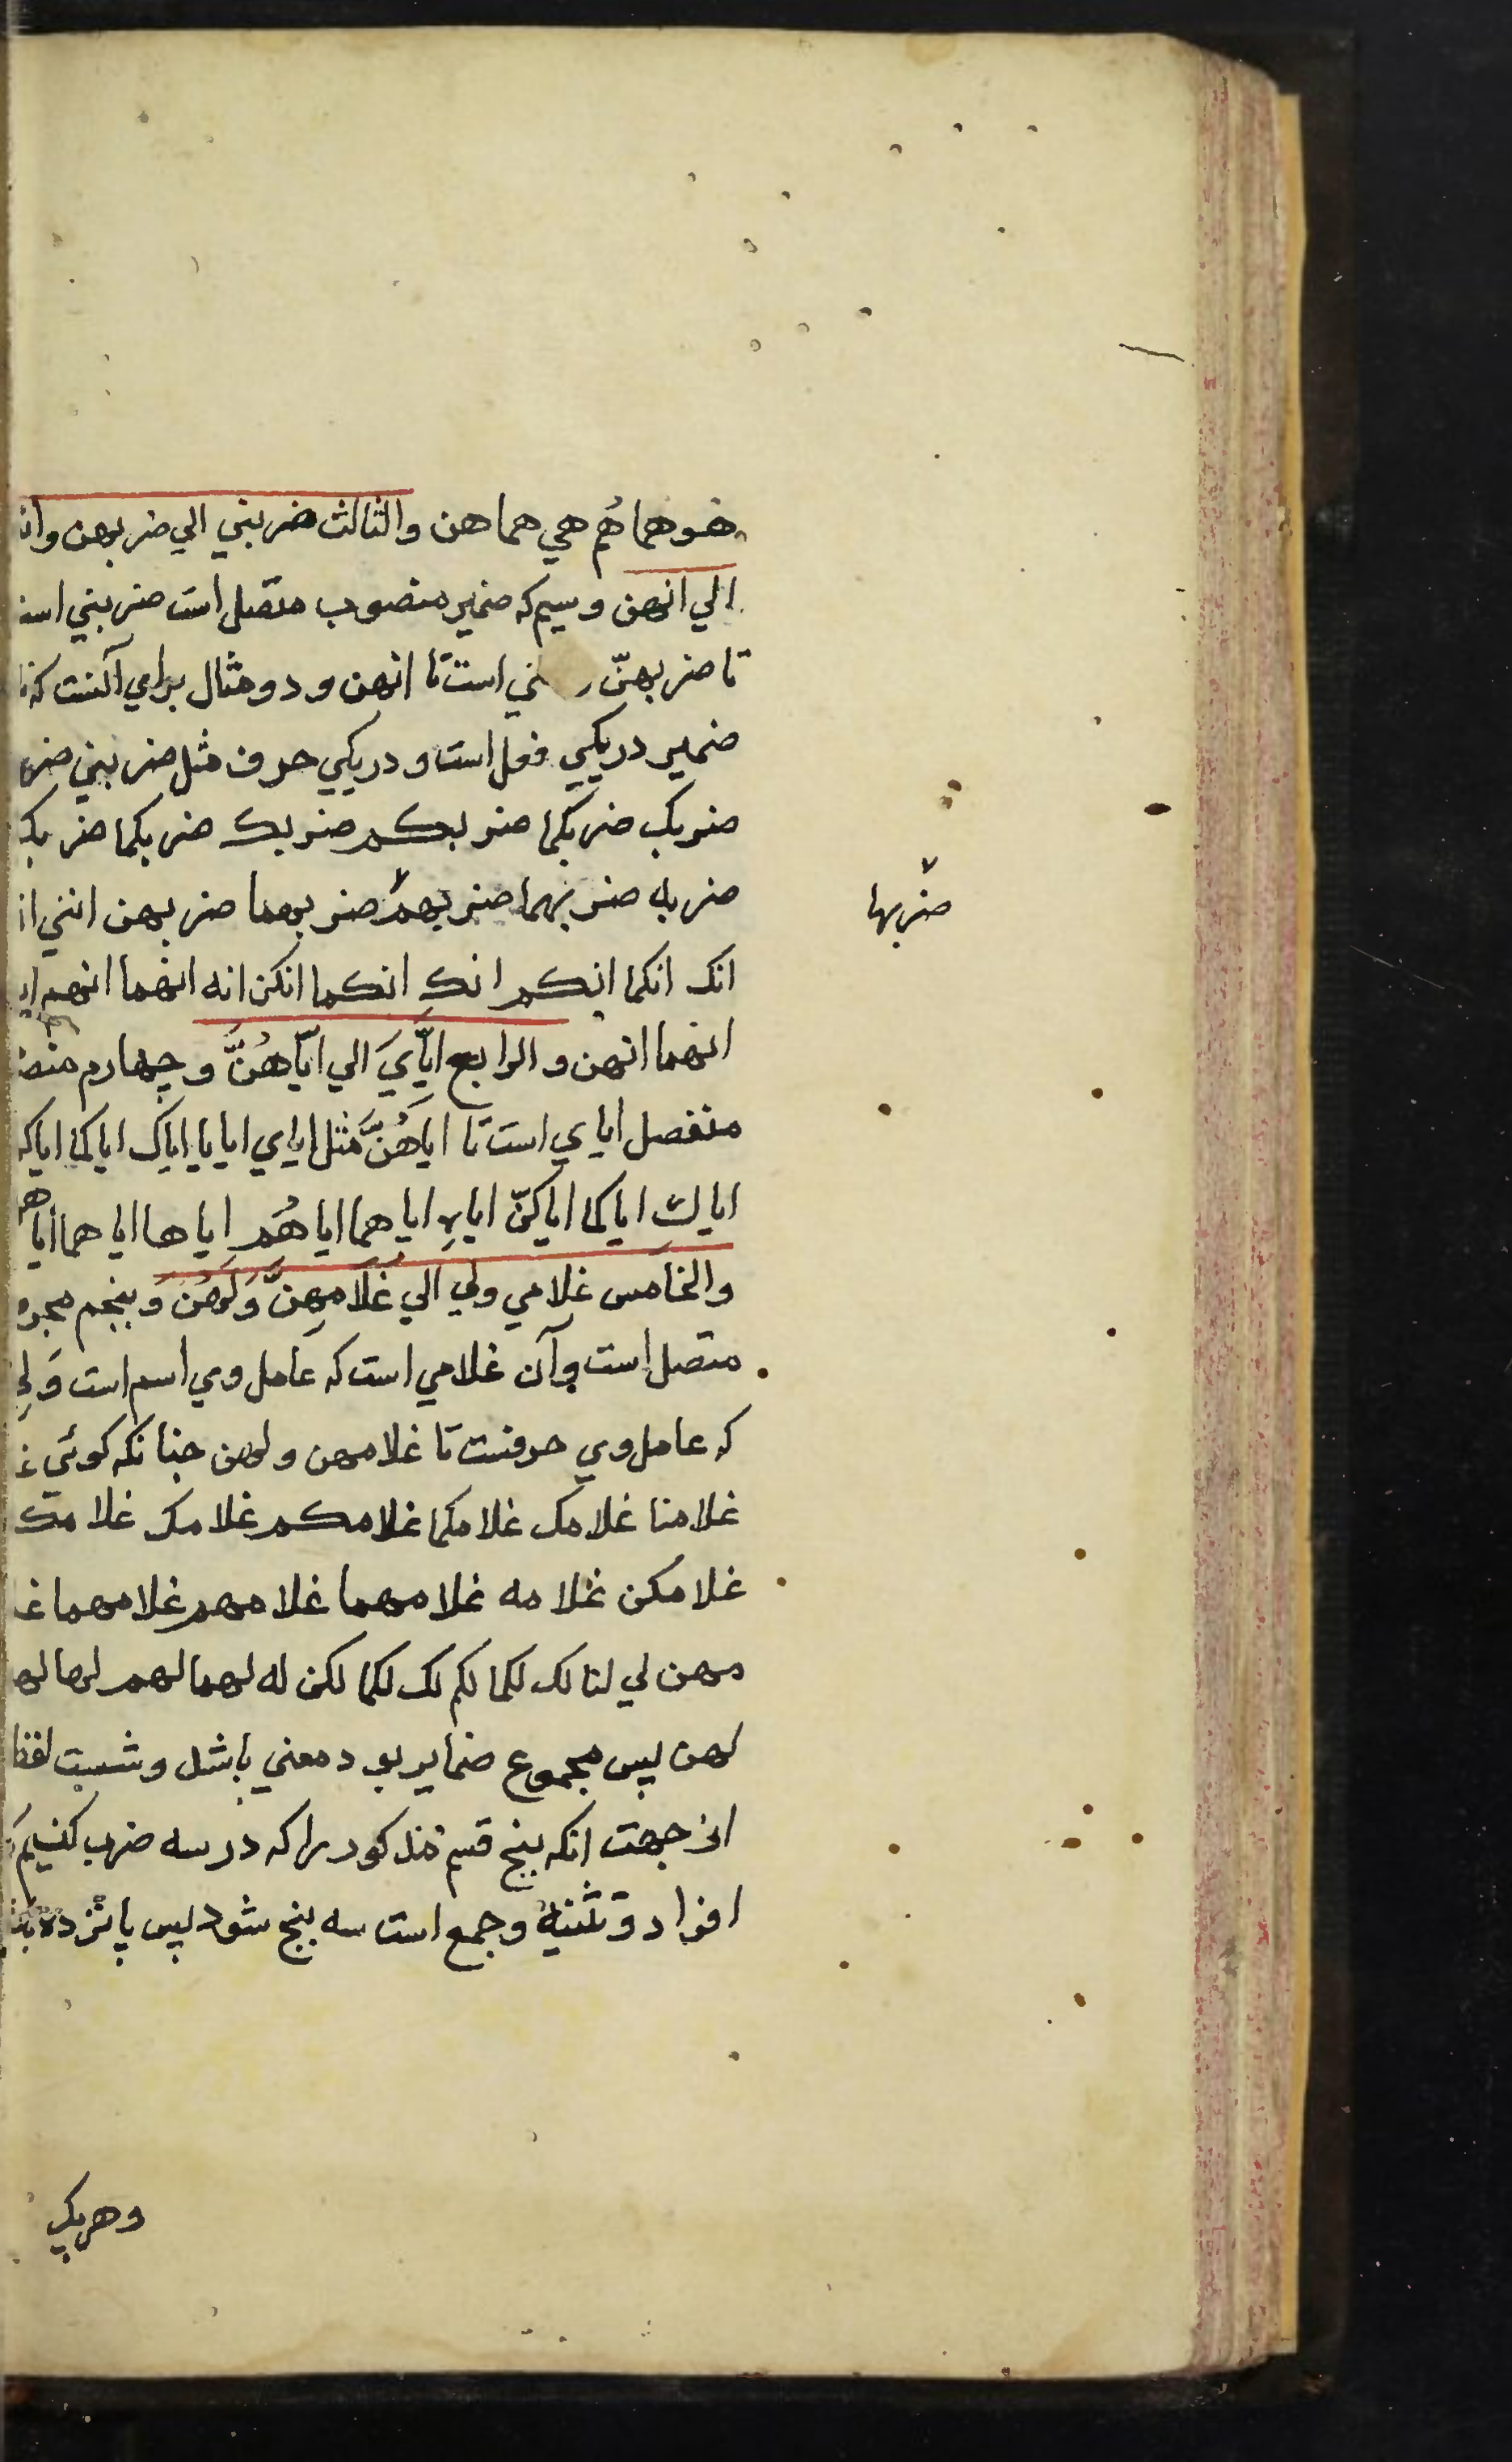 هو هما هُم هي هما هن والثالث ضربني الي ضربهن وان
الي انهن وسيم كه ضمير منصوب متصل است ضربني است
تا ضربهنّ ني است تا انهن و دو مثال براي آنست كه
ضمير در يكي فعل است و در يكي حرف مثل ضربني
ضربك ضربكما ضربكم ضربك ضربكما
ضربه ضربهما ضربهم ضربهما ضربهن انني
ضربها
انك انكما انكم انكِ انكما انكن انه انهما انهم
انهما انهن والرابع ايّايَ الي ايّاهُنَّ وچهارم
منفصل اياي است تا اياهُنَّ مثل اياي ايانا اياك اياكما
اياكِ اياكما اياكنّ اياه اياهما اياهُم اياها اياهما اياهن
والخامس غلامي ولي الي غلامهنَّ وَلَهُنَ وَپنجم
متصل است وآن غلامي است كه عامل وي اسم است وَلِي
كه عامل وي حرفست تا غلامهن ولهن چنانكه كوئي
غلامنا غلامك غلامكما غلامكم غلامك
غلامكن غلامه غلامهما غلامهم غلامهما
مهن لي لنا لك لكما لكم لك لكما لكن له لهما لهم لها
لهن پس مجموع ضماير بو د معني باشد وشصت
از جهت انكه پنج قسم مذكور را كه در سه ضرب كنيم
افراد و تثنيه وجمع است سه پنج شود پس پانزده
وهريك